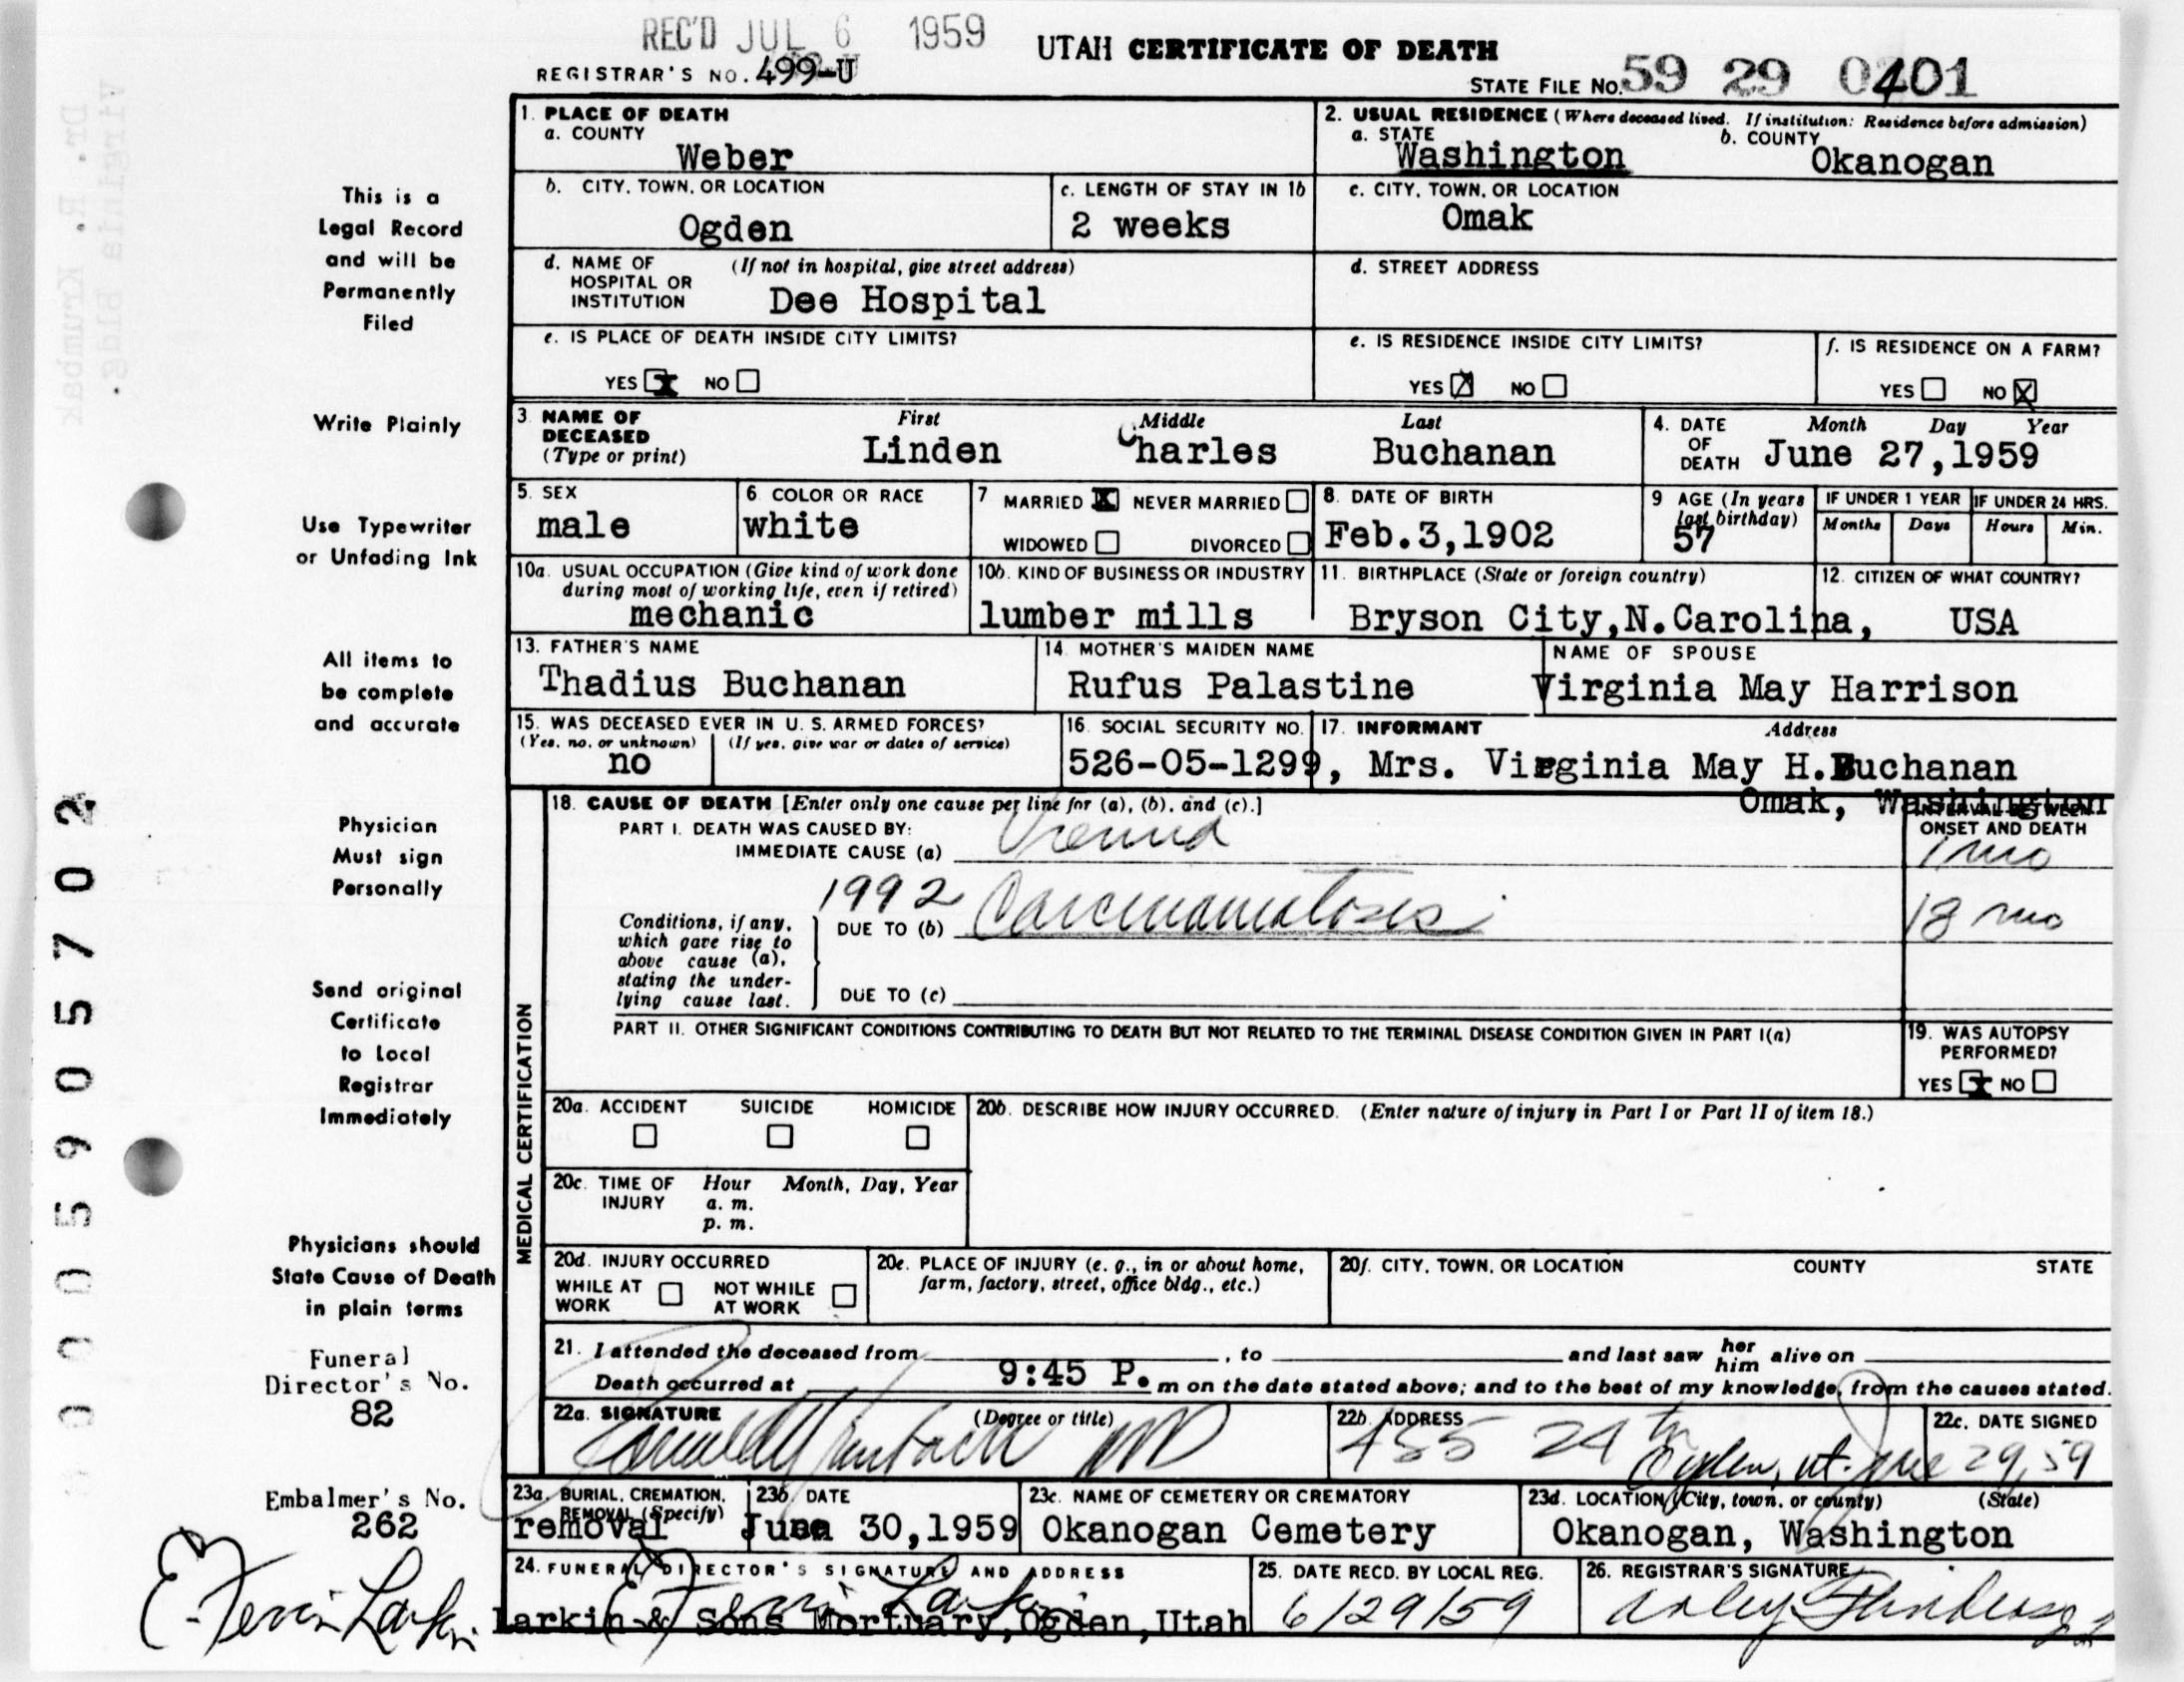 REC'D JUL 6 1959
UTAH CERTIFICATE OF DEATH
REGISTRAR'S NO. 499-U
STATE FILE NO. 59 29 0401
This is a
Legal Record
and will be
Permanently
Filed
Write Plainly
Use Typewriter
or Unfading Ink
All items to
be complete
and accurate
Physician
Must sign
Personally
Send original
Certificate
to Local
Registrar
Immediately
Physicians should
State Cause of Death
in plain terms
Funeral
Director's No.
82
Embalmer's No.
262
E. Fervin Larkin
1. PLACE OF DEATH
a. COUNTY
Weber
2. USUAL RESIDENCE (Where deceased lived. If institution: Residence before admission)
a. STATE b. COUNTY
Washington Okanogan
b. CITY, TOWN, OR LOCATION
Ogden
c. LENGTH OF STAY IN 1b
2 weeks
c. CITY, TOWN, OR LOCATION
Omak
d. NAME OF (If not in hospital, give street address)
HOSPITAL OR
INSTITUTION Dee Hospital
d. STREET ADDRESS
e. IS PLACE OF DEATH INSIDE CITY LIMITS?
YES X NO
e. IS RESIDENCE INSIDE CITY LIMITS?
YES X NO
f. IS RESIDENCE ON A FARM?
YES NO X
3. NAME OF DECEASED (Type or print)
First Middle Last
Linden Charles Buchanan
4. DATE OF DEATH Month Day Year
June 27,1959
5. SEX
male
6. COLOR OR RACE
white
7. MARRIED X NEVER MARRIED
WIDOWED DIVORCED
8. DATE OF BIRTH
Feb.3,1902
9. AGE (In years last birthday)
57
IF UNDER 1 YEAR IF UNDER 24 HRS.
Months Days Hours Min.
10a. USUAL OCCUPATION (Give kind of work done
during most of working life, even if retired)
mechanic
10b. KIND OF BUSINESS OR INDUSTRY
lumber mills
11. BIRTHPLACE (State or foreign country)
Bryson City,N.Carolina,
12. CITIZEN OF WHAT COUNTRY?
USA
13. FATHER'S NAME
Thadius Buchanan
14. MOTHER'S MAIDEN NAME
Rufus Palastine
NAME OF SPOUSE
Virginia May Harrison
15. WAS DECEASED EVER IN U. S. ARMED FORCES?
(Yes, no, or unknown) (If yes, give war or dates of service)
no
16. SOCIAL SECURITY NO.
526-05-1299,
17. INFORMANT Address
Mrs. Virginia May H.Buchanan
Omak, Washington
18. CAUSE OF DEATH [Enter only one cause per line for (a), (b), and (c).]
INTERVAL BETWEEN
ONSET AND DEATH
PART I. DEATH WAS CAUSED BY:
IMMEDIATE CAUSE (a) Uremia
1 mo
1992
Conditions, if any,
which gave rise to
above cause (a),
stating the under-
lying cause last.
DUE TO (b) Carcinomatosis
18 mo
DUE TO (c)
PART II. OTHER SIGNIFICANT CONDITIONS CONTRIBUTING TO DEATH BUT NOT RELATED TO THE TERMINAL DISEASE CONDITION GIVEN IN PART I(a)
19. WAS AUTOPSY
PERFORMED?
YES X NO
MEDICAL CERTIFICATION
20a. ACCIDENT SUICIDE HOMICIDE
20b. DESCRIBE HOW INJURY OCCURRED. (Enter nature of injury in Part I or Part II of item 18.)
20c. TIME OF INJURY Hour Month, Day, Year
a. m.
p. m.
20d. INJURY OCCURRED
WHILE AT WORK NOT WHILE AT WORK
20e. PLACE OF INJURY (e. g., in or about home,
farm, factory, street, office bldg., etc.)
20f. CITY, TOWN, OR LOCATION COUNTY STATE
21. I attended the deceased from , to and last saw her him alive on
Death occurred at 9:45 P. m on the date stated above; and to the best of my knowledge, from the causes stated.
22a. SIGNATURE (Degree or title)
MD
22b. ADDRESS
455 24th
Ogden, Ut.
22c. DATE SIGNED
June 29, 59
23a. BURIAL, CREMATION,
REMOVAL (Specify)
removal
23b. DATE
June 30,1959
23c. NAME OF CEMETERY OR CREMATORY
Okanogan Cemetery
23d. LOCATION (City, town, or county) (State)
Okanogan, Washington
24. FUNERAL DIRECTOR'S SIGNATURE AND ADDRESS
E. Fervin Larkin
Larkin & Sons Mortuary,Ogden,Utah
25. DATE RECD. BY LOCAL REG.
6/29/59
26. REGISTRAR'S SIGNATURE